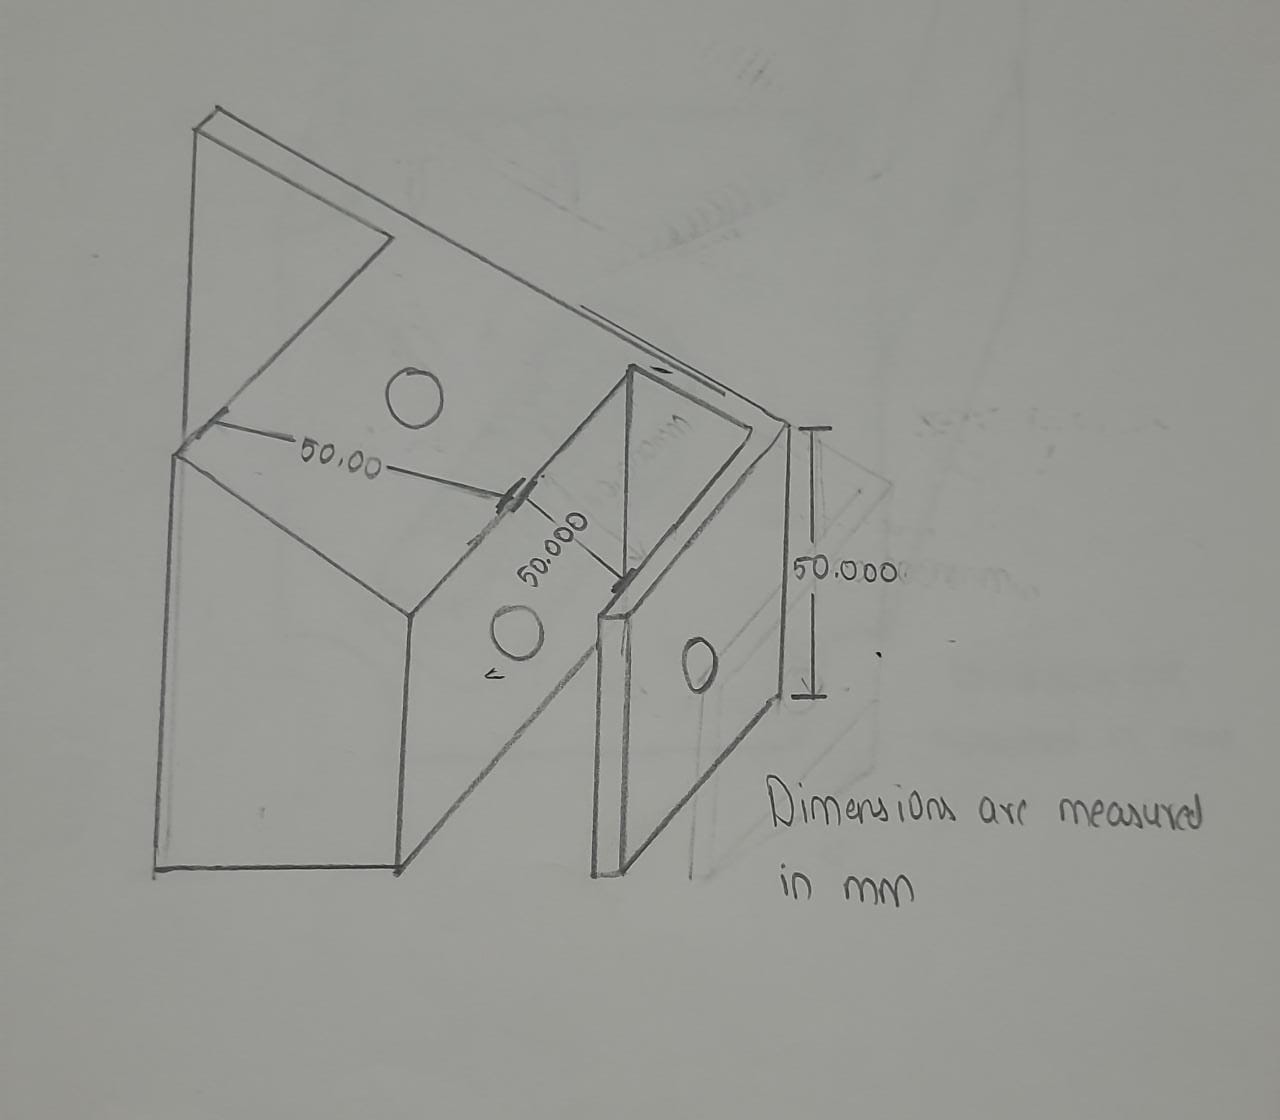 50.00
50.000
50.000
Dimensions are measured
in mm